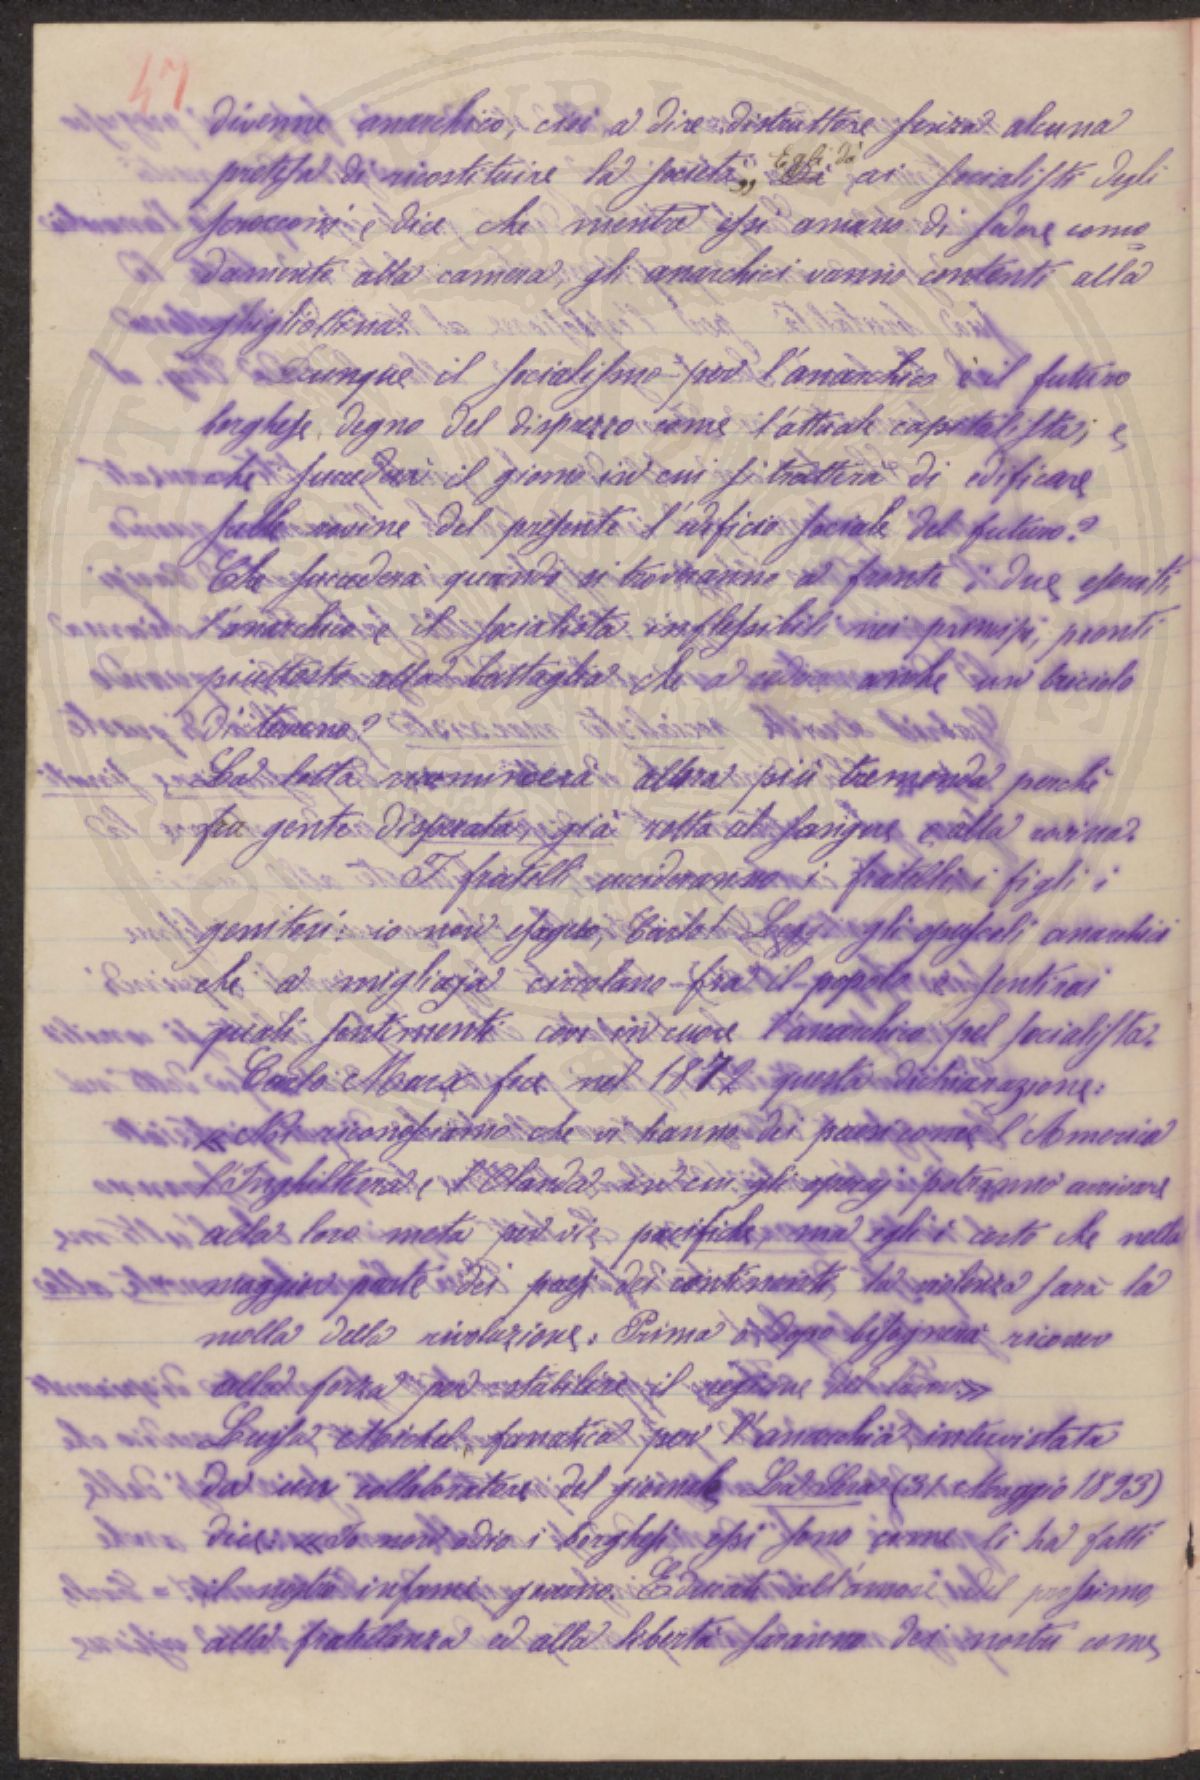 47
divenne anarchico, cioè a dire distruttore senza alcuna
pretesa di ricostituire la società", Egli dà ai socialisti degli
scrocconi e dice che mentre essi amano di sedere como=
damente alla camera, gli anarchici vanno contenti alla
ghigliottina.
Dunque il socialismo per l'anarchico è il futuro
borghese, degno del disprezzo come l'attuale capitalista; e
che succederà il giorno in cui si tratterà di edificare
sulle rovine del presente l'edificio sociale del futuro?
Che succederà quando si troveranno di fronte i due
l'anarchico e il socialista inflessibili nei principi, pronti
piuttosto alla battaglia che a cedere anche un briciolo
di terreno?
La lotta ricomincerà allora più tremenda perchè
fra gente disperata, già rotta al sangue e alla rovina.
I fratelli uccideranno i fratelli, i figli i
genitori: io non esagero, Carlo! Leggi gli opuscoli anarchici
che a migliaja circolano fra il popolo e sentirai
quali sentimenti covi in cuore l'anarchico pel socialista.
Carlo Marx fece nel 1872 questa dichiarazione:
« Noi riconosciamo che vi hanno dei paesi come l'America
l'Inghilterra e l'Olanda, in cui gli operaj potranno arrivare
alla loro meta per vie pacifiche, ma egli è certo che nella
maggior parte dei paesi del continente, la violenza sarà la
molla della rivoluzione. Prima o dopo bisognerà ricorrere
alla forza per stabilire il regime del lavoro»
Luisa Michel, fanatica per l'anarchia, intervistata
da un collaboratore del giornale La Sera (31 Maggio 1893)
dice: « Io non odio i borghesi, essi sono come li ha fatti
il nostro infame governo. Educati all'amore del prossimo,
alla fratellanza ed alla libertà saranno dei nostri come